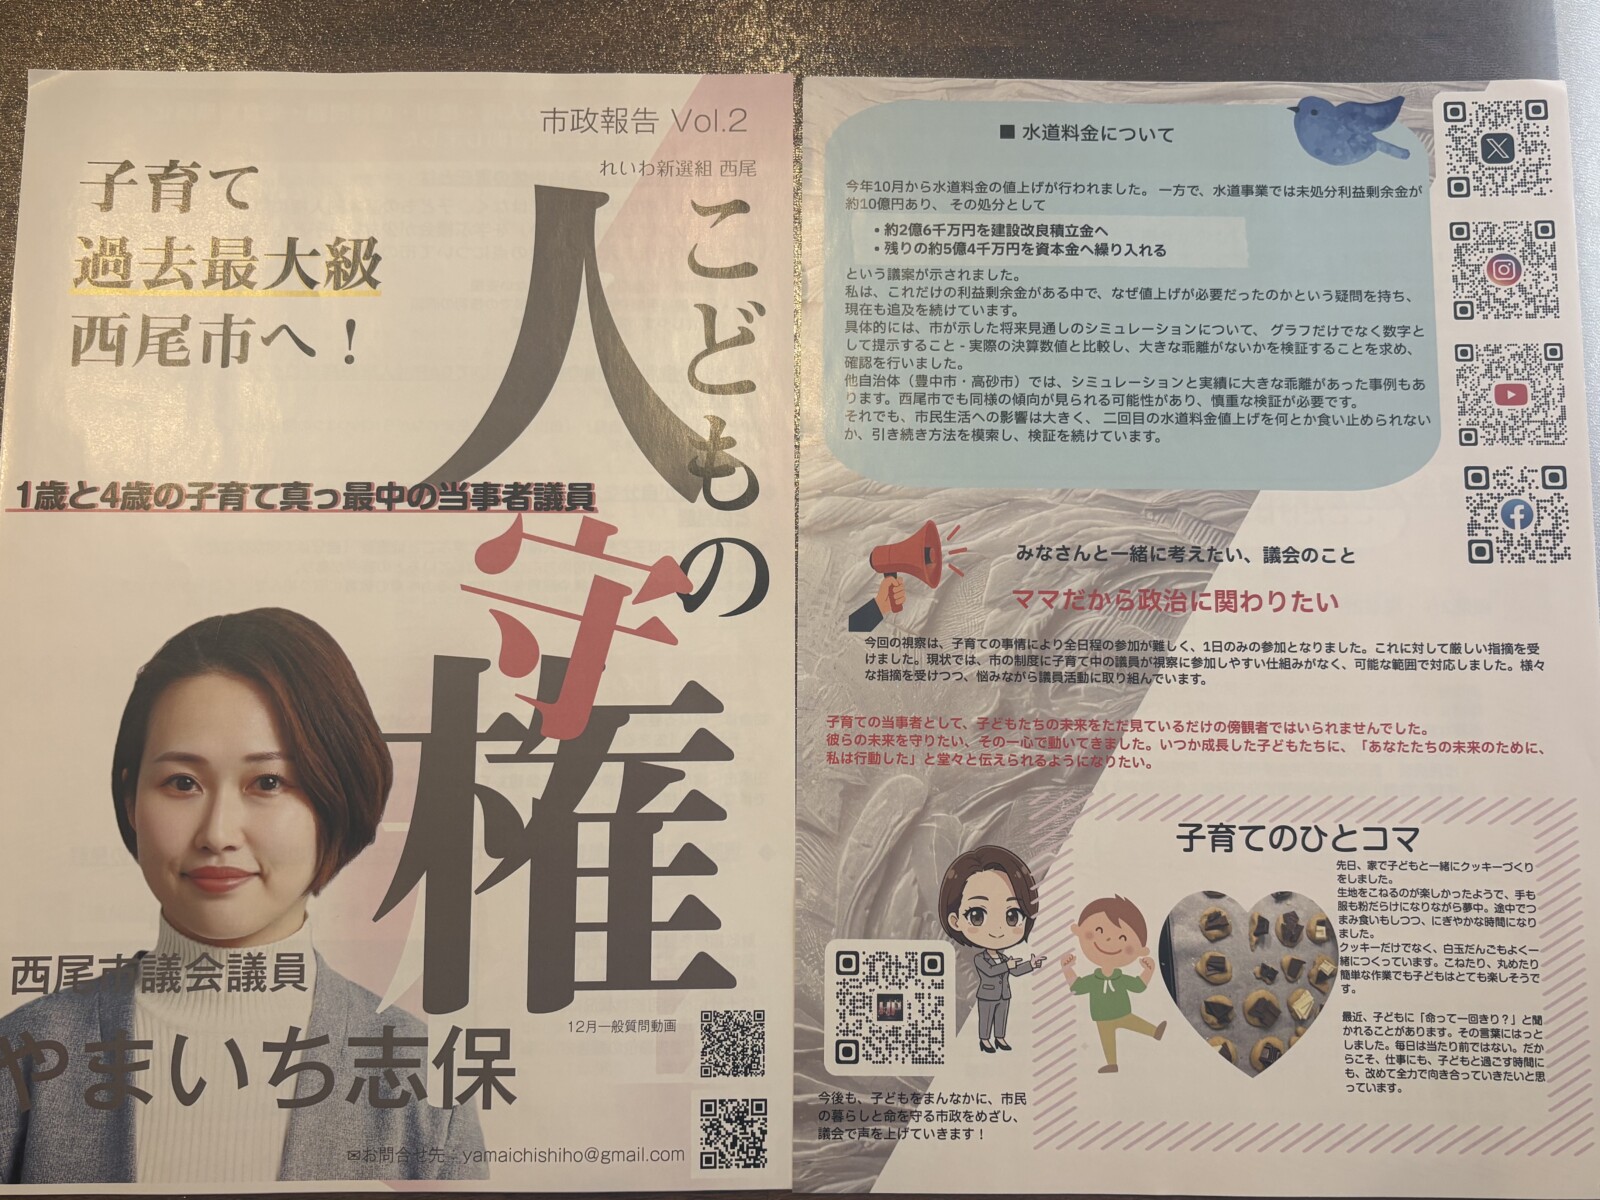 市政報告 Vol.2
れいわ新選組 西尾
子育て
過去最大級
西尾市へ！
こどもの
人権
守
1歳と4歳の子育て真っ最中の当事者議員
西尾市議会議員
やまいち志保
12月一般質問動画
✉お問合せ先 - yamaichishiho@gmail.com
■ 水道料金について
今年10月から水道料金の値上げが行われました。 一方で、水道事業では未処分利益剰余金が
約10億円あり、 その処分として
• 約2億6千万円を建設改良積立金へ
• 残りの約5億4千万円を資本金へ繰り入れる
という議案が示されました。
私は、これだけの利益剰余金がある中で、なぜ値上げが必要だったのかという疑問を持ち、
現在も追及を続けています。
具体的には、市が示した将来見通しのシミュレーションについて、 グラフだけでなく数字と
して提示すること - 実際の決算数値と比較し、大きな乖離がないかを検証することを求め、
確認を行いました。
他自治体（豊中市・高砂市）では、シミュレーションと実績に大きな乖離があった事例もあ
ります。西尾市でも同様の傾向が見られる可能性があり、慎重な検証が必要です。
それでも、市民生活への影響は大きく、 二回目の水道料金値上げを何とか食い止められない
か、引き続き方法を模索し、検証を続けています。
みなさんと一緒に考えたい、議会のこと
ママだから政治に関わりたい
今回の視察は、子育ての事情により全日程の参加が難しく、1日のみの参加となりました。これに対して厳しい指摘を受
けました。現状では、市の制度に子育て中の議員が視察に参加しやすい仕組みがなく、可能な範囲で対応しました。様々
な指摘を受けつつ、悩みながら議員活動に取り組んでいます。
子育ての当事者として、子どもたちの未来をただ見ているだけの傍観者ではいられませんでした。
彼らの未来を守りたい、その一心で動いてきました。いつか成長した子どもたちに、「あなたたちの未来のために、
私は行動した」と堂々と伝えられるようになりたい。
子育てのひとコマ
先日、家で子どもと一緒にクッキーづくり
をしました。
生地をこねるのが楽しかったようで、手も
服も粉だらけになりながら夢中。途中でつ
まみ食いもしつつ、にぎやかな時間になり
ました。
クッキーだけでなく、白玉だんごもよく一
緒につくっています。こねたり、丸めたり
簡単な作業でも子どもはとても楽しそうで
す。
最近、子どもに「命って一回きり？」と聞
かれることがあります。その言葉にはっと
しました。毎日は当たり前ではない。だか
らこそ、仕事にも、子どもと過ごす時間に
も、改めて全力で向き合っていきたいと思
っています。
今後も、子どもをまんなかに、市民
の暮らしと命を守る市政をめざし、
議会で声を上げていきます！